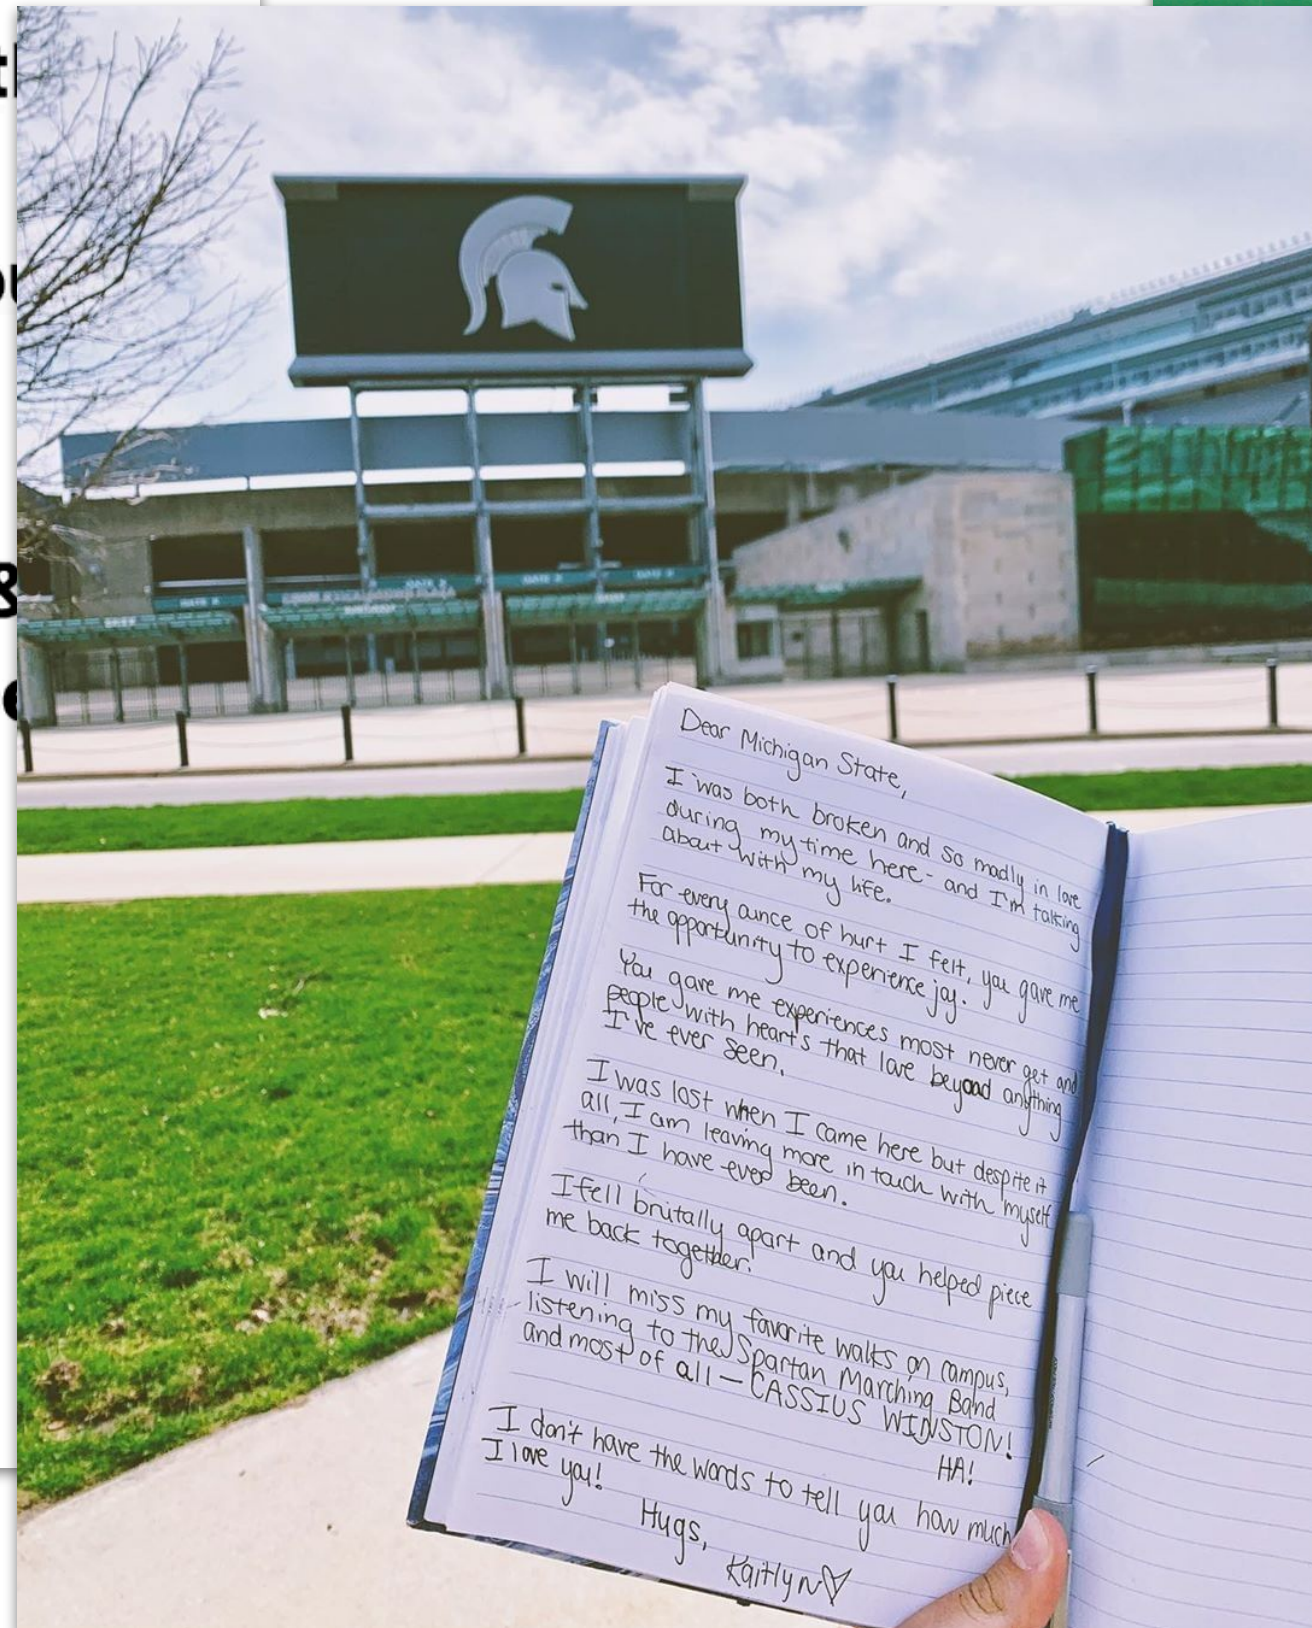 GATE 2
GATE 2
GATE 2
Dear Michigan State,
I was both broken and so madly in love
during my time here - and I'm talking
about with my life.
For every ounce of hurt I felt, you gave me
the opportunity to experience joy.
You gave me experiences most never get and
people with hearts that love beyond anything
I've ever seen.
I was lost when I came here but despite it
all, I am leaving more in touch with myself
than I have ever been.
I fell brutally apart and you helped piece
me back together.
I will miss my favorite walks on campus,
listening to the Spartan Marching Band
and most of all — CASSIUS WINSTON!
HA!
I don't have the words to tell you how much
I love you!
Hugs,
Kaitlyn♡